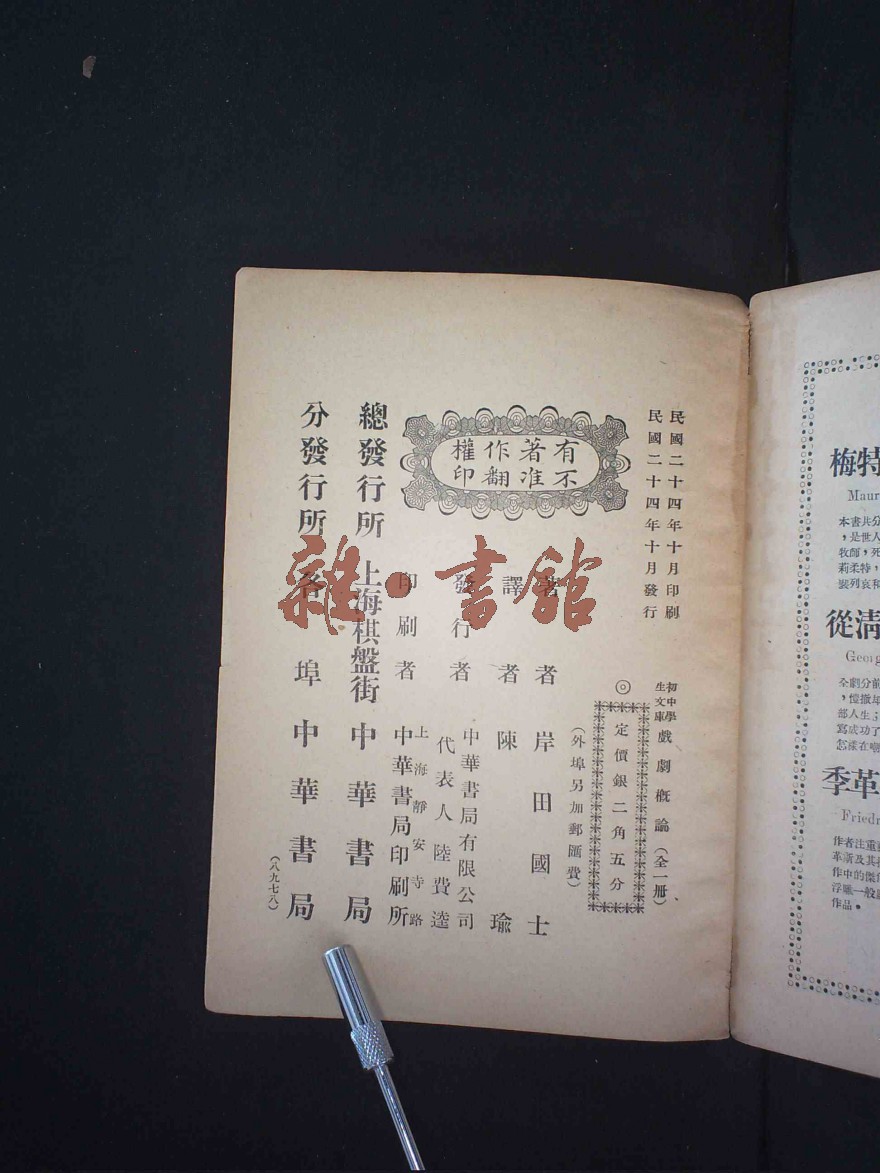 民國二十四年十月印刷
民國二十四年十月發行
初中學生文庫 戲劇概論（全一册）
◎定價銀二角五分
（外埠另加郵匯費）
有著作權
不准翻印
著者 岸田國士
譯者 陳瑜
發行者 中華書局有限公司
代表人陸費逵
印刷者 上海靜安寺路
中華書局印刷所
總發行所 上海棋盤街 中華書局
分發行所 各埠中華書局
（八九七八）
雜·書館
梅特
Maur
本書共分
，是世人
牧師，死
莉柔特，
裂列哀和
從清
Georg
全劇分前
部人生；
寫成功了
怎樣在
季革
Friedr
作者注重
革新及其
作中的傑
作品。